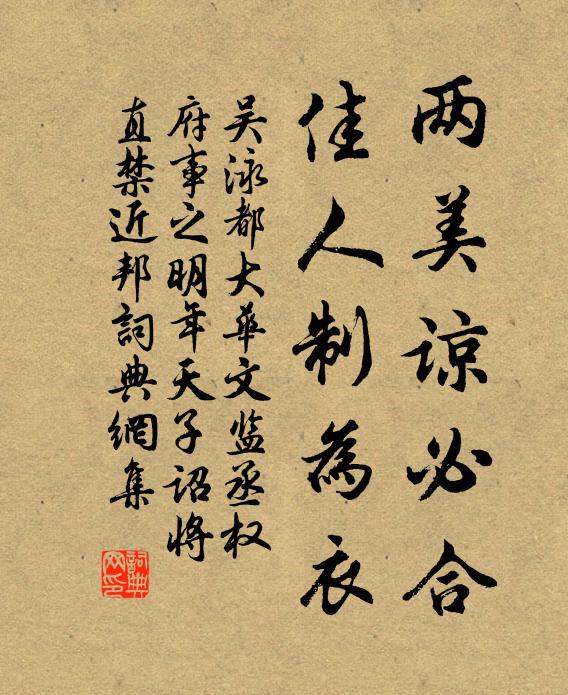 两美谅必合
佳人制為衣
吴泳都大華文监丞权
府事之明年天子诏將
直禁近邦詞典網集
詞典网印